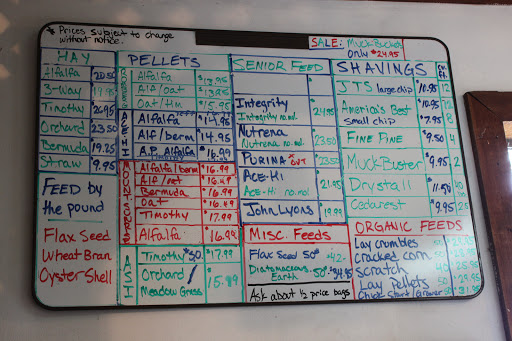 * Prices subject to change
without notice.
SALE: MuckBucket
Only $24.95
HAY
Alfalfa 20.50
3-Way
Timothy 26.95
Orchard 23.50
Bermuda 19.25
Straw 9.95
FEED by
the pound
Flax Seed
Wheat Bran
Oyster Shell
PELLETS
Alfalfa $13.95
Alf/oat
Oat/Hm $15.95
Alfalfa $14.95
Alf/berm $14.95
A.P. Alfalfa $16.99
Alfalfa/berm $16.99
Alf/oat $16.49
Bermuda $16.99
Oat $16.49
Timothy $17.99
Alfalfa $16.99
Timothy 50 $17.99
Orchard/
Meadow Grass 15.89
SENIOR FEED
Integrity
Integrity no mol. 24.95
Nutrena
Nutrena no mol. 23.50
PURINA OUT 23.50
Ace-Hi
Ace-Hi no mol. 21.95
John Lyons 19.99
MISC FEEDS
Flax Seed 50# 42-
Diatomaceous
Earth 50# $34.95
Ask about 1/2 price bags
SHAVINGS cu. ft.
JTS large chip $10.95 12
America's Best $10.95 12
small chip $7.95 8
FINE FINE $9.50 4
MuckBuster $9.95 2
Drystall $11.50
Cedarest $9.95 2.5
ORGANIC FEEDS
Lay crumbles
cracked corn
Scratch
Lay Pellets
Chick Start/Grower